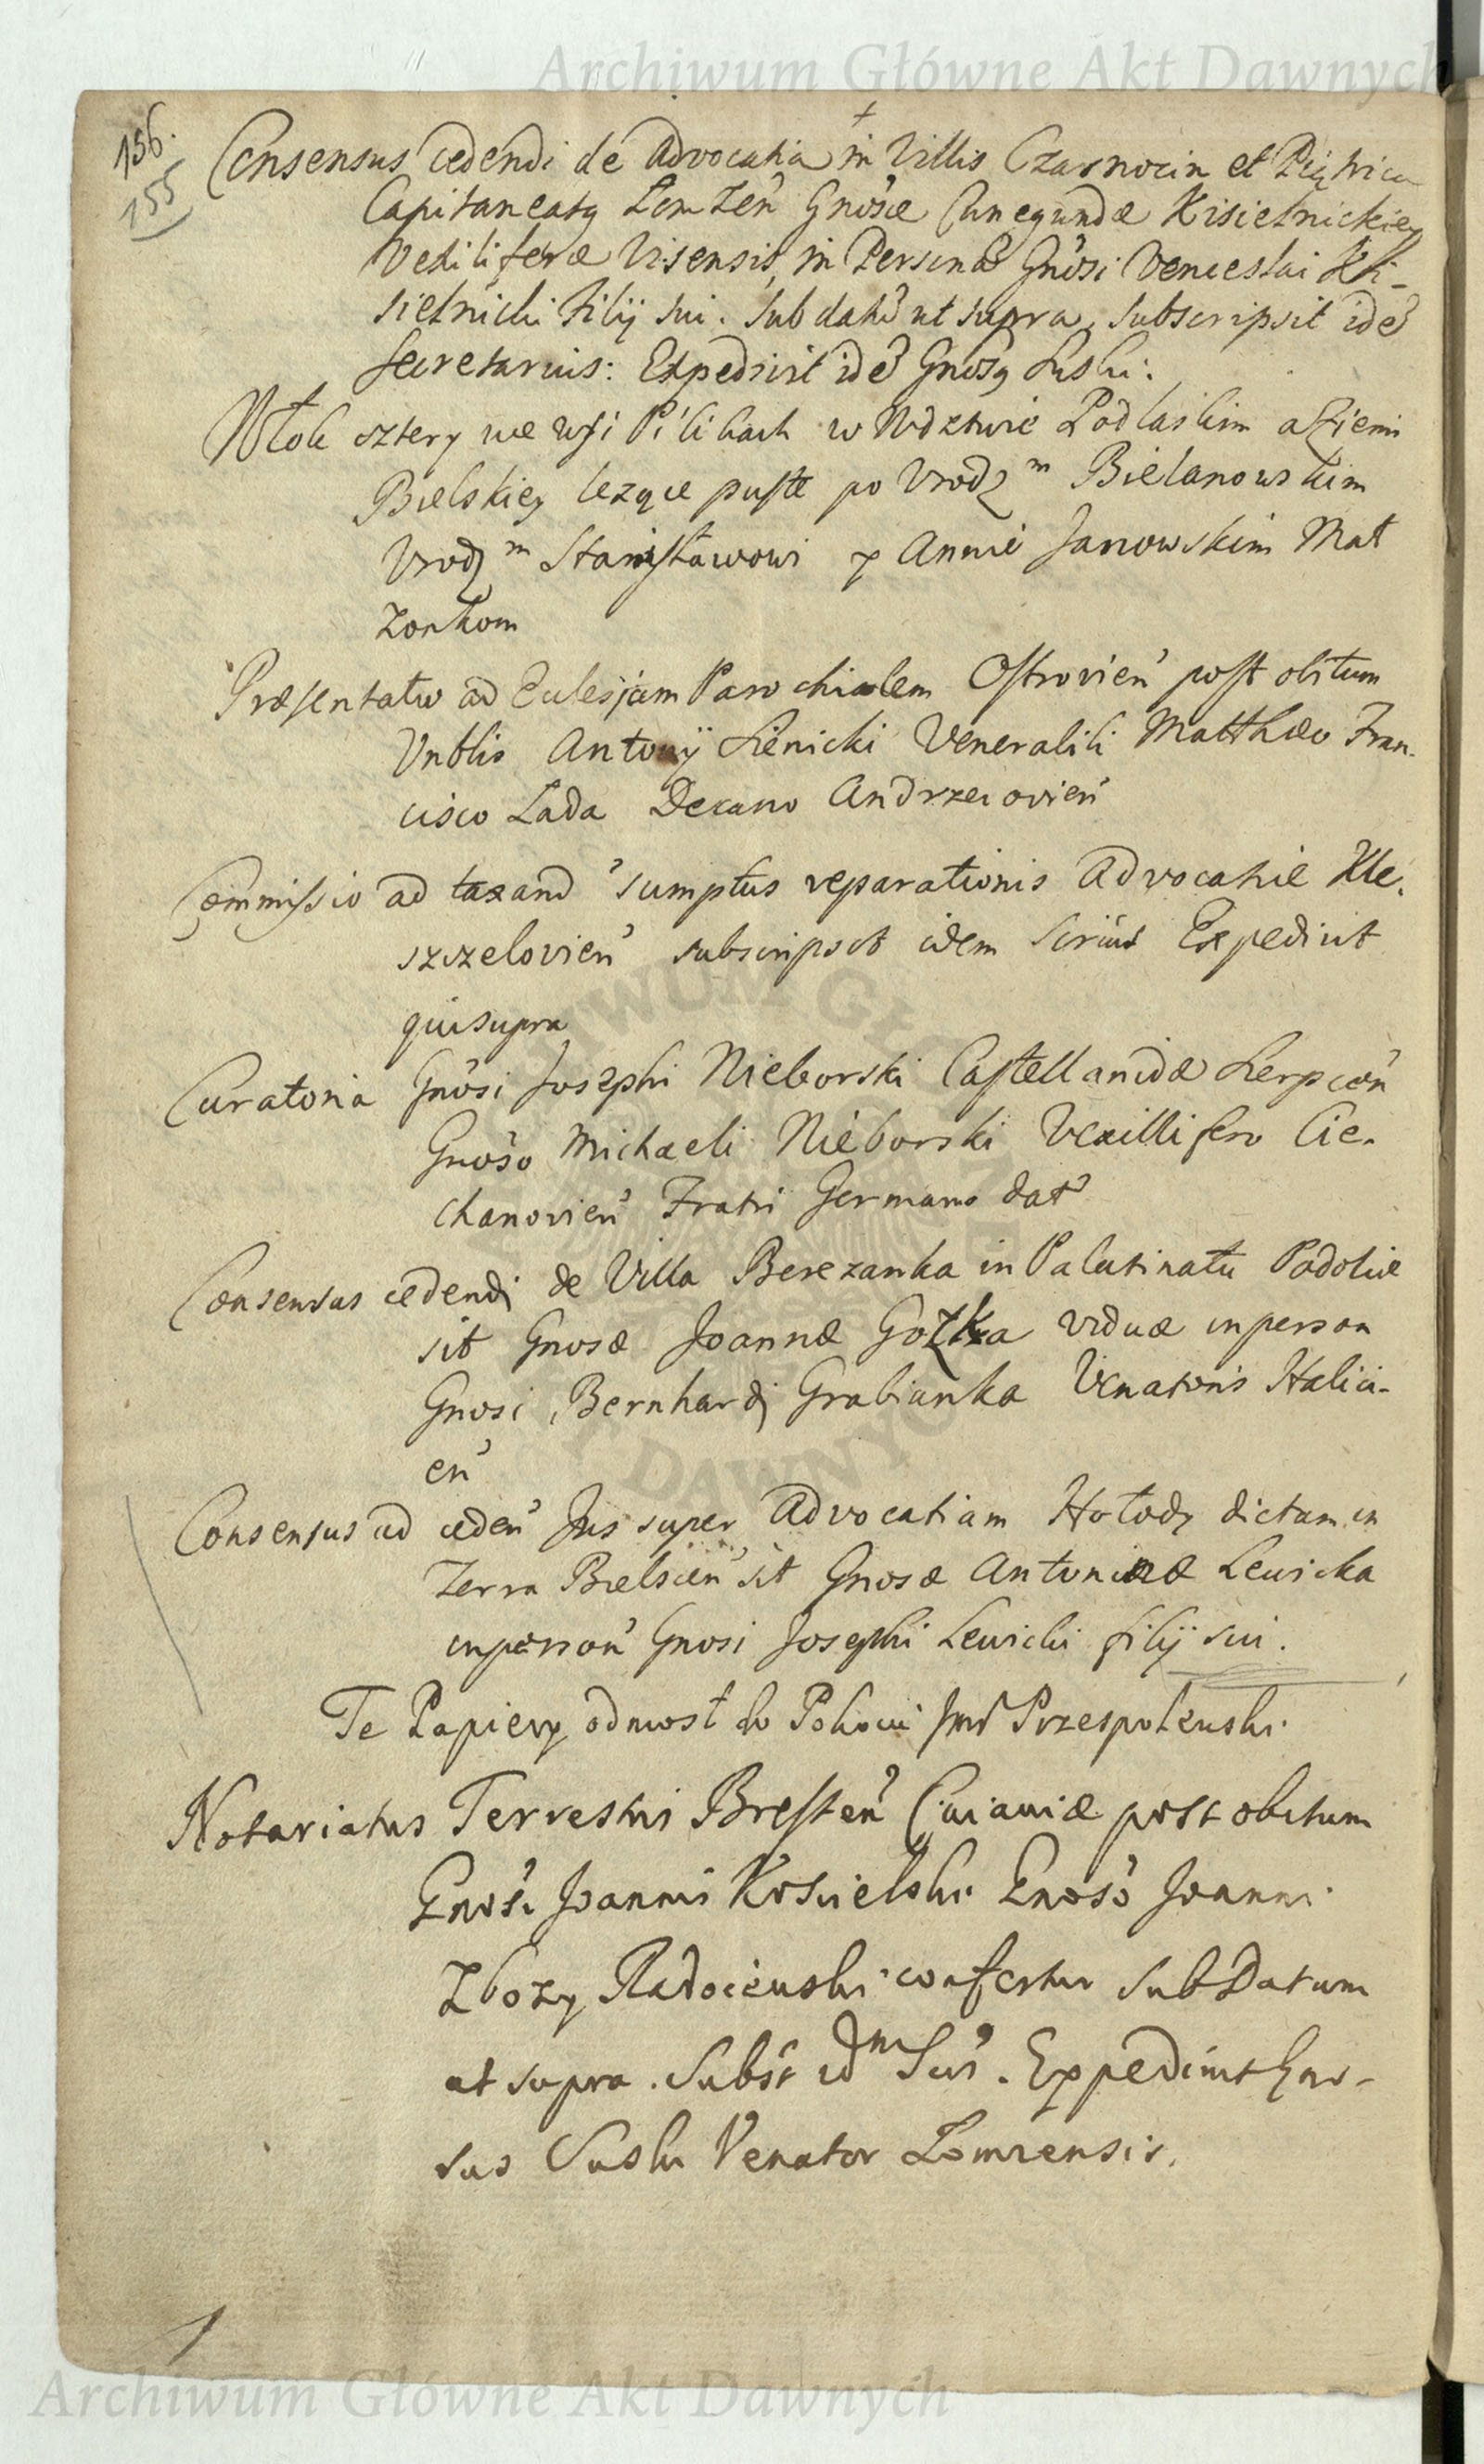 Archiwum Główne Akt Dawnych
156.
155
Consensus cedendi de Advocatia in Villis Czarnocin et Piątnica
Capitaneatq Lomżen̄ Gnosæ Cunegundæ Kisielnickiey
Vexiliferæ Visensis, in Personā Gnosi Venceslai Ki-
sielnicki filij sui. Sub datū ut supra, subscripsit idē
Secretarius: Expedivit idē Gnosq Suski.
Włok cztery we wsi Pilikach w Wdztwie Podlaskim a Ziemi
Bielskiey lezące puste po Urodz m Bielanowskim
Urodz m Stanisławowi y Annie Janowskim Mał
zonkom
Præsentatio ad Eclesjam Parochialem Ostrovien̄ post obitum
Vnblis Antonij Sienicki Venerabili Matthæo Fran-
cisco Lada Decano Andrzeiovien̄
Commissio ad taxand̄ sumptus reparationis Advocatiæ Kle-
szczelovien̄ subscripsit idem Scrius Expedivit
qui supra
Curatoria Gnosi Josephi Nieborski Castellanidæ Serpcen̄
Gnoso Michaeli Nieborski Vexillifero Cie-
chanovien̄ Fratri Germano dat̄
Consensus cedendi de Villa Berezanka in Palatinatu Podoliæ
sit Gnosæ Joannæ Gozka viduæ in person
Gnosi Bernhardj Grabianka Venatoris Halici-
en̄
Consensus ad ceden̄ Jus super Advocatiam Hołody dictam in
Terra Bielscen̄ sit Gnosæ Antoninæ Lewicka
in person̄ Gnosi Josephi Lewicki filij sui.
Te Papiery odniosł do Pokoiu Jmć Przespolewski.
Notariatus Terrestris Bresten̄ Cuiaviæ post obitum
Gnosi Joannis Kościelski Gnoso Joanni
Zbozy Radoiewski confertur Sub Datum
ut supra. Subst id m Sius. Expedivit Gno-
sus Suski Venator Lomzensis.
Archiwum Główne Akt Dawnych